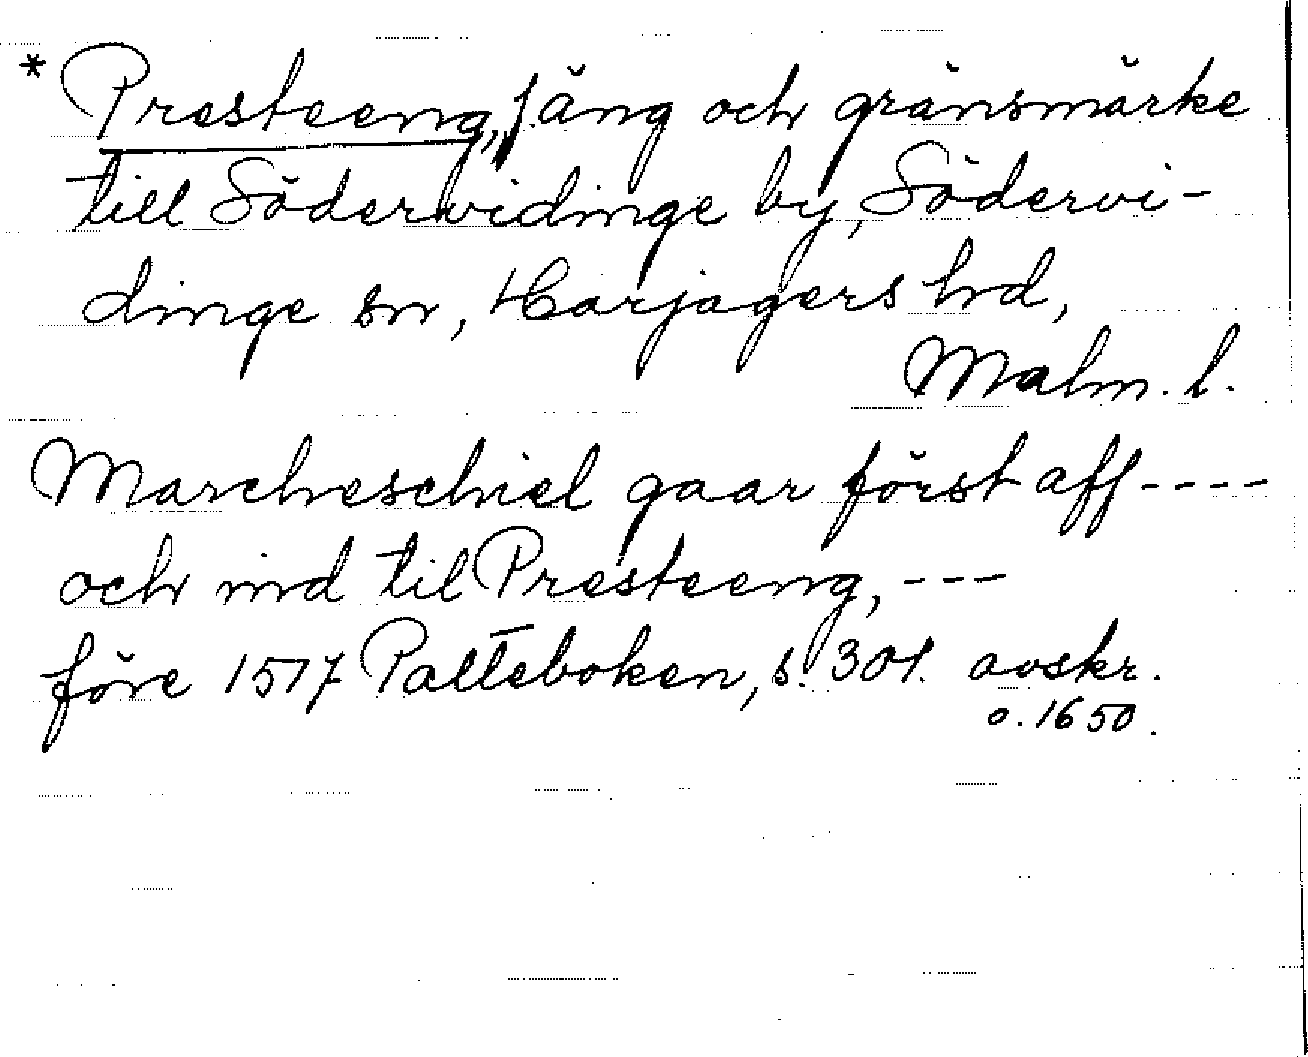 * Presteeng, f. äng och gränsmärke
till Södervidinge by, Södervi-
dinge sn, Harjagers hd,
Malm. l.
Marcheschiel gaar först aff ----
och ind til Presteeng, ---
före 1517 Palteboken, s. 301. avskr.
o. 1650.